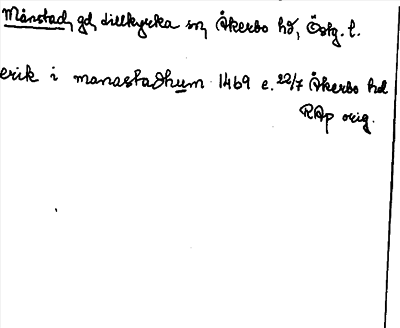 Månstad, gd, Lillkyrka sn, Åkerbo hd, Östg. l.
erik i manastadhum 1469 e. 22/7 Åkerbo hd
RAp orig.